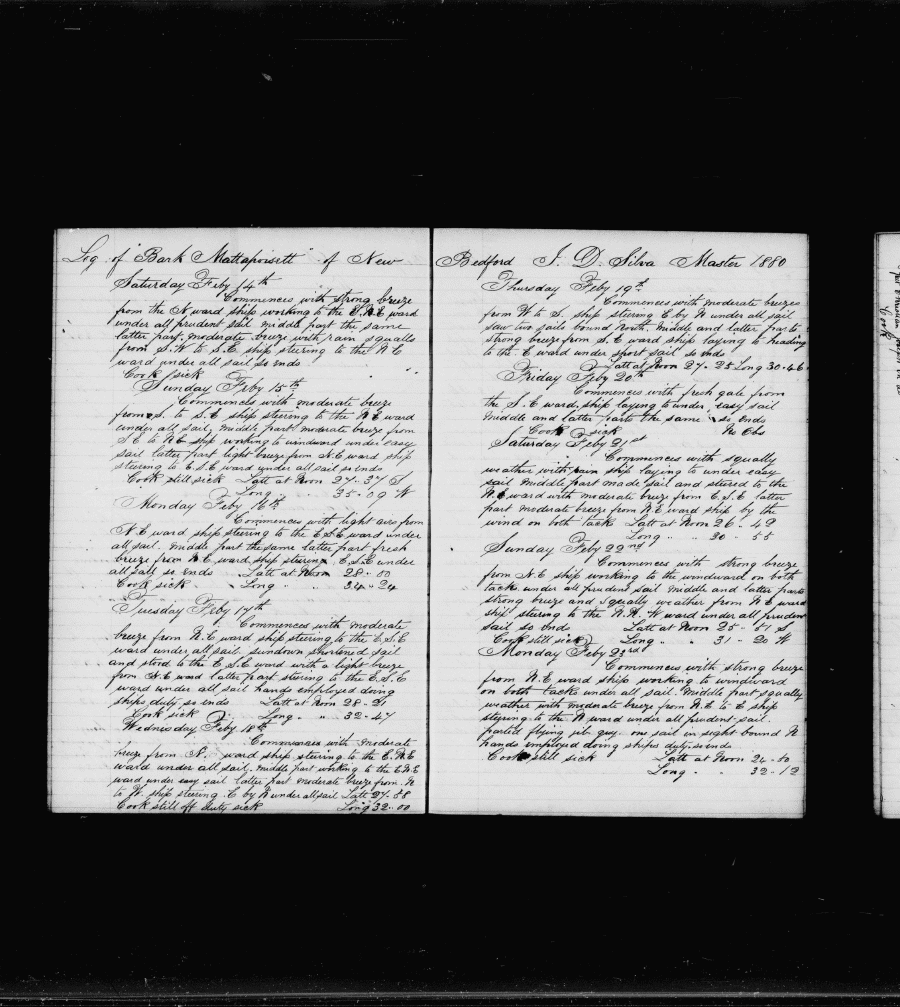 Log of Bark Mattapoisett of New
Saturday Feby 14th
Commences with strong breeze
from the N ward ship working to the E.N.E ward
under all prudent sail middle part the same
latter part moderate breeze with rain squalls
from S.W to S.E ship steering to the N.E
ward under all sail so ends
Cook sick
Sunday Feby 15th
Commences with moderate breeze
from S. to S.E ship steering to the N.E ward
under all sail, middle part moderate breeze from
S E to N E ship working to windward under easy
sail latter part light breeze from N.E ward ship
steering to E.S.E ward under all sail so ends
Cook still sick Latt at Noon 27-37 S
Long " " 35-09 W
Monday Feby 16th
Commences with light airs from
N.E ward ship steering to the E.S.E ward under
all sail. middle part the same latter part fresh
breeze from N.E ward ship steering E.S.E under
all sail so ends Latt at Noon 28-00
Cook sick Long " " 34-24
Tuesday Feby 17th
Commences with moderate
breeze from N.E ward ship steering to the E.S.E
ward under all sail. sundown shortened sail
and stood to the E.S.E ward with a light breeze
from N.E ward latter part stering to the E.S.E
ward under all sail hands employed doing
ships duty so ends Latt at Noon 28-21
Cook sick Long " " 32-47
Wednesday Feby 18th
Commences with moderate
breeze from N. ward ship steering to the E.N.E
ward under all sail. middle part working to the E.N.E
ward under easy sail latter part moderate breeze from N
to W. ship steering E by N under all sail Latt 27-58
Cook still off duty sick Long 32-00
Bedford J. D. Silva Master 1880
Thursday Feby 19th
Commences with moderate breezes
from W to S. ship steering E by N under all sail
saw two sails bound North. middle and latter parts
strong breeze from S.E ward ship laying to heading
to the E ward under short sail so ends
Latt at Noon 27-25 Long 30-46
Friday Feby 20th
Commences with fresh gale from
the S.E ward, ship laying to under easy sail
middle and latter parts the same so ends
Cook sick No Obs
Saturday Feby 21st
Commences with squally
weather with rain ship laying to under easy
sail middle part made sail and steered to the
N.E ward with moderate breeze from E.S.E latter
part moderate breeze from N.E ward ship by the
wind on both tacks Latt at Noon 26-49
Long " " 30-55
Sunday Feby 22nd
Commences with strong breeze
from N.E ship working to the windward on both
tacks under all prudent sail middle and latter parts
strong breeze and squally weather from N E ward
ship steering to the N.N.W ward under all prudent
sail so ends Latt at Noon 25-51 S
Cook still sick Long " " 31-20 W
Monday Feby 23rd
Commences with strong breeze
from N.E ward ship working to windward
on both tacks under all sail. middle part squally
weather with moderate breeze from N.E to E ship
steering to the N ward under all prudent sail.
parted flying jib guy. one sail in sight bound N
hands employed doing ships duty so ends
Cook still sick Latt at Noon 24-50
Long " " 32-12